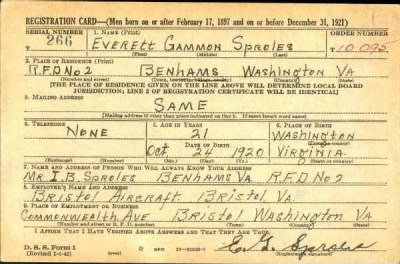 REGISTRATION CARD—(Men born on or after February 17, 1897 and on or before December 31, 1921)
SERIAL NUMBER 1. NAME (Print) ORDER NUMBER
266 EVERETT GAMMON SPROLES T10095
(First) (Middle) (Last)
2. PLACE OF RESIDENCE (Print)
R.F.D No 2 BENHAMS WASHINGTON VA
(Number and street) (Town, township, village, or city) (County) (State)
[THE PLACE OF RESIDENCE GIVEN ON THE LINE ABOVE WILL DETERMINE LOCAL BOARD
JURISDICTION; LINE 2 OF REGISTRATION CERTIFICATE WILL BE IDENTICAL]
3. MAILING ADDRESS
SAME
[Mailing address if other than place indicated on line 2. If same insert word same]
4. TELEPHONE 5. AGE IN YEARS 6. PLACE OF BIRTH
NONE 21 WASHINGTON
DATE OF BIRTH (Town or county)
Oct 24 1920 VIRGINIA
(Exchange) (Number) (Mo.) (Day) (Yr.) (State or country)
7. NAME AND ADDRESS OF PERSON WHO WILL ALWAYS KNOW YOUR ADDRESS
MR I.B. SPROLES BENHAMS VA R.F.D No 2
8. EMPLOYER'S NAME AND ADDRESS
BRISTOL AIRCRAFT BRISTOL VA.
9. PLACE OF EMPLOYMENT OR BUSINESS
COMMONWEALTH AVE BRISTOL WASHINGTON VA
(Number and street or R. F. D. number) (Town) (County) (State)
I AFFIRM THAT I HAVE VERIFIED ABOVE ANSWERS AND THAT THEY ARE TRUE.
D. S. S. Form 1 GPO E. G. Sproles
(Revised 1-1-42) (Registrant's signature)